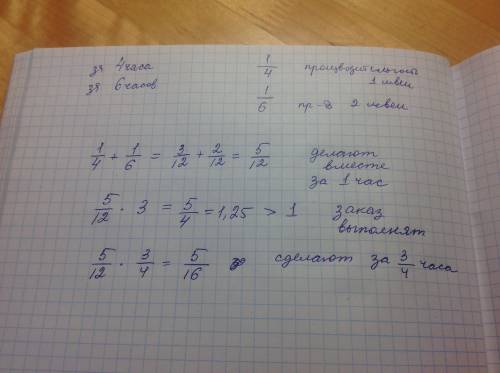 за 4 часа 1/4 производительность
1 швеи
за 6 часов 1/6 пр-ть 2 швеи
1/4 + 1/6 = 3/12 + 2/12 = 5/12 делают
вместе
за 1 час
5/12 · 3 = 5/4 = 1,25 > 1 заказ
выполнят
5/12 · 3/4 = 5/16 сделают за 3/4 часа